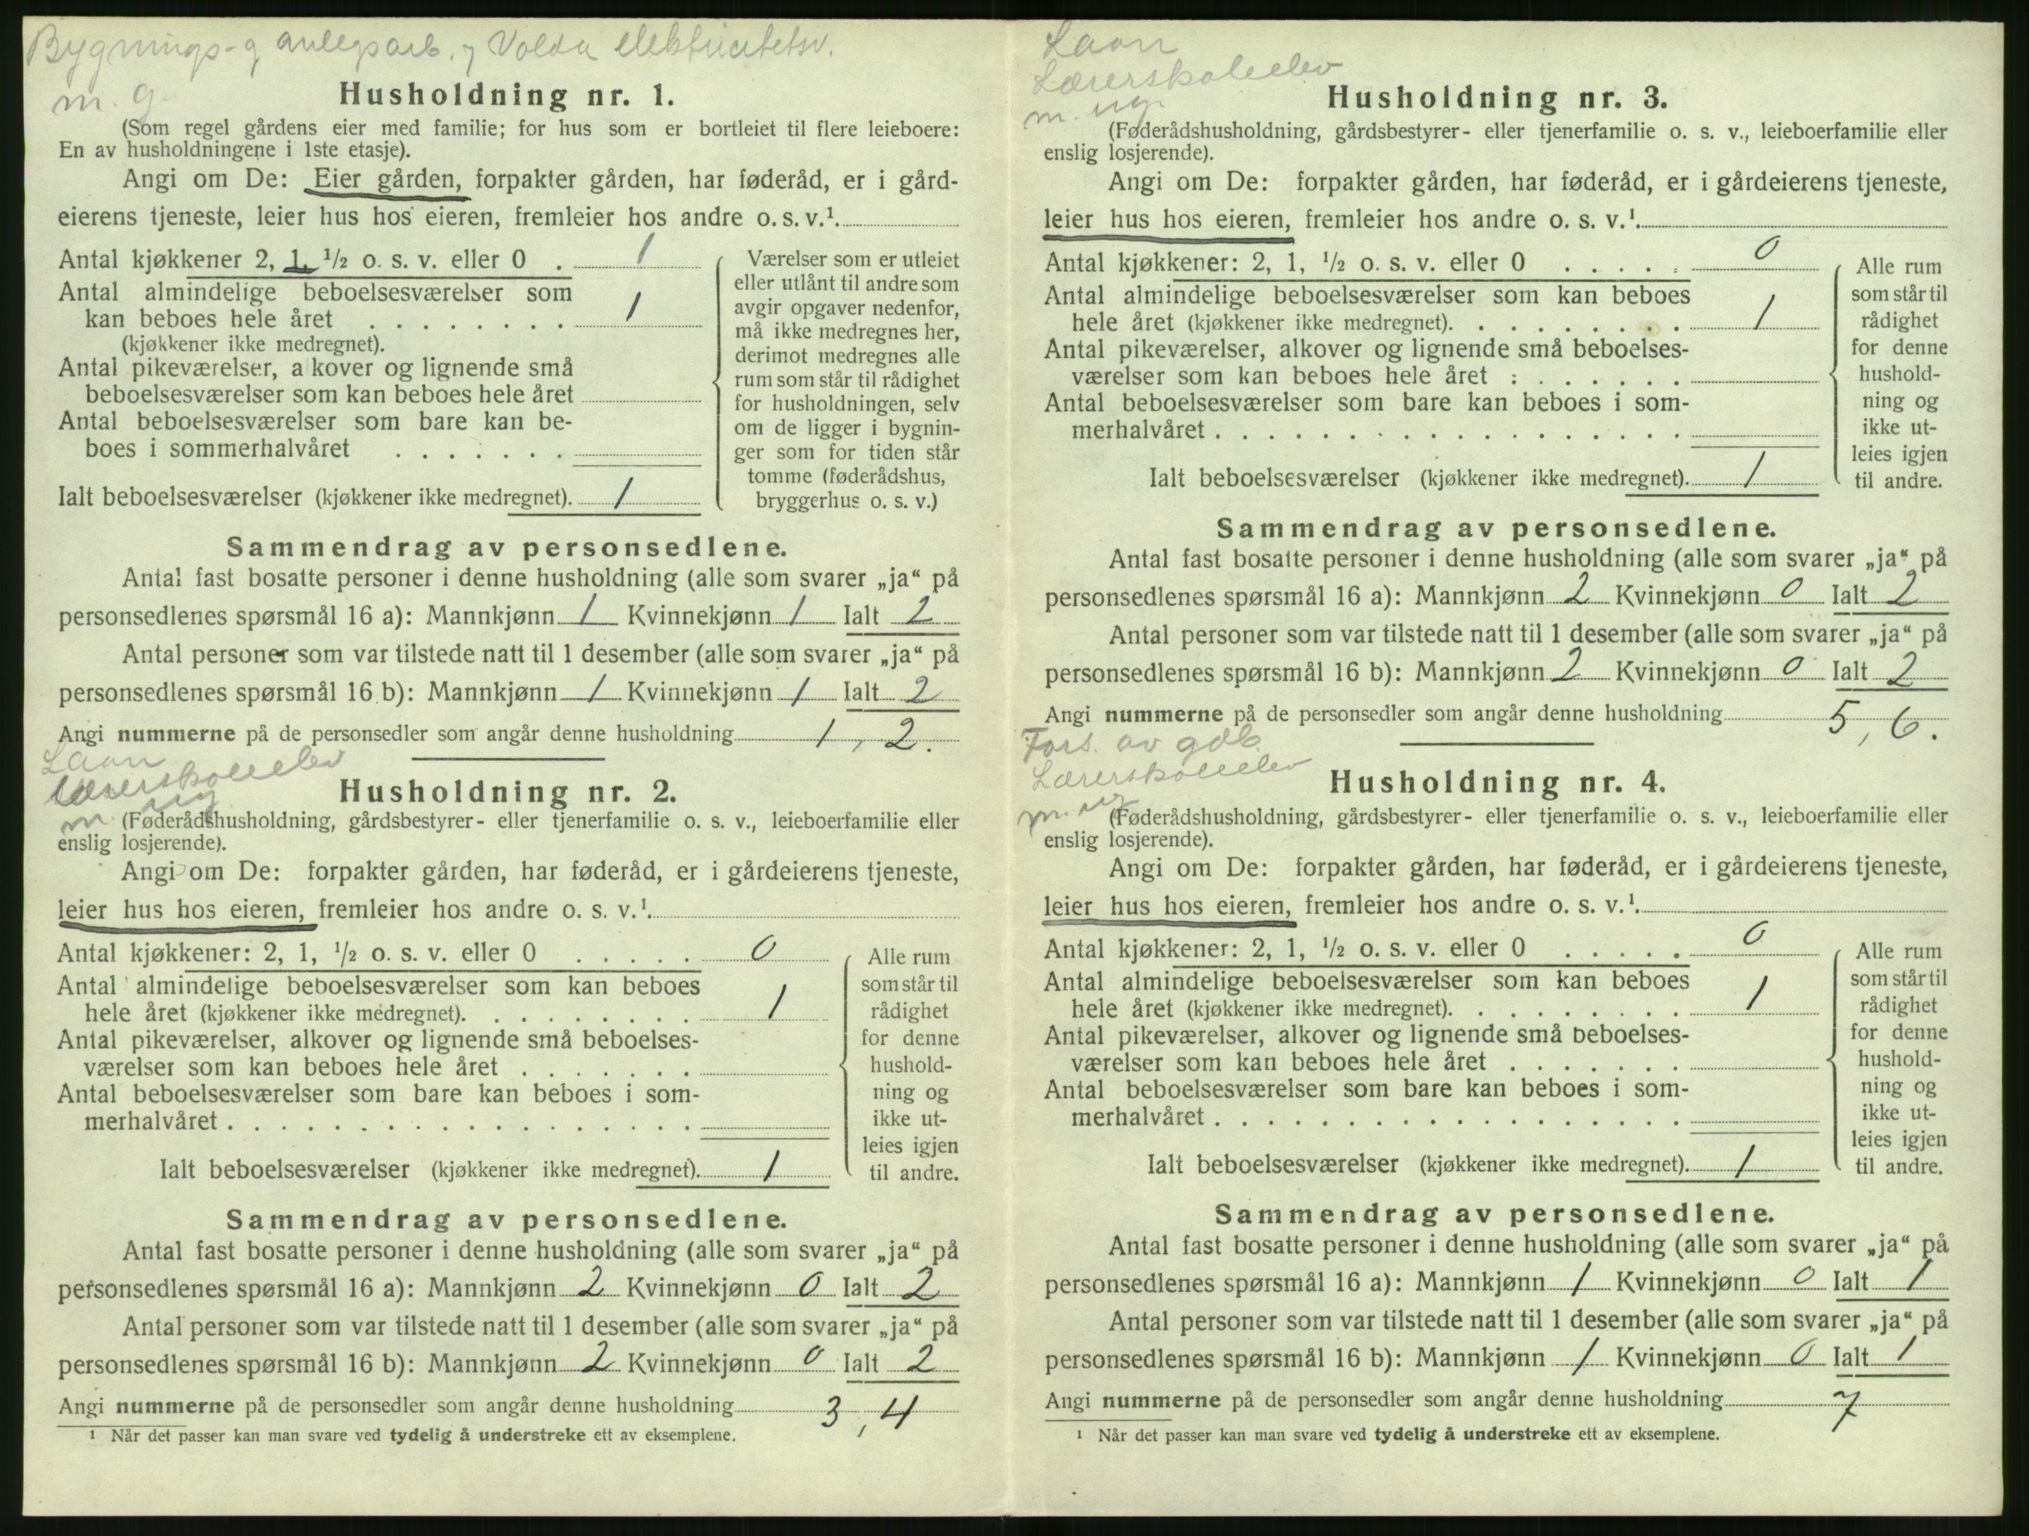 Bygnings- og anlegsarb. v Volda elektricitetsv.
m. g.
Husholdning nr. 1.
(Som regel gårdens eier med familie; for hus som er bortleiet til flere leieboere:
En av husholdningene i 1ste etasje).
Angi om De: Eier gården, forpakter gården, har føderåd, er i gård-
eierens tjeneste, leier hus hos eieren, fremleier hos andre o. s. v.¹.
Antal kjøkkener 2, 1, ½ o. s. v. eller 0 . 1
Antal almindelige beboelsesværelser som
kan beboes hele året . . . . . . . . 1
(kjøkkener ikke medregnet).
Antal pikeværelser, a kover og lignende små
beboelsesværelser som kan beboes hele året
Antal beboelsesværelser som bare kan be-
boes i sommerhalvåret . . . . . . .
Ialt beboelsesværelser (kjøkkener ikke medregnet). 1
Værelser som er utleiet
eller utlånt til andre som
avgir opgaver nedenfor,
må ikke medregnes her,
derimot medregnes alle
rum som står til rådighet
for husholdningen, selv
om de ligger i bygnin-
ger som for tiden står
tomme (føderådshus,
bryggerhus o. s. v.)
Sammendrag av personsedlene.
Antal fast bosatte personer i denne husholdning (alle som svarer „ja“ på
personsedlenes spørsmål 16 a): Mannkjønn 1 Kvinnekjønn 1 Ialt 2
Antal personer som var tilstede natt til 1 desember (alle som svarer „ja“ på
personsedlenes spørsmål 16 b): Mannkjønn 1 Kvinnekjønn 1 Ialt 2
Angi nummerne på de personsedler som angår denne husholdning 1, 2.
Laan
Lærerskoleelev
m ug
Husholdning nr. 2.
(Føderådshusholdning, gårdsbestyrer- eller tjenerfamilie o. s. v., leieboerfamilie eller
enslig losjerende).
Angi om De: forpakter gården, har føderåd, er i gårdeierens tjeneste,
leier hus hos eieren, fremleier hos andre o. s. v.¹.
Antal kjøkkener: 2, 1, ½ o. s. v. eller 0 . . . . . 0
Antal almindelige beboelsesværelser som kan beboes
hele året (kjøkkener ikke medregnet). . . . . . . . . 1
Antal pikeværelser, alkover og lignende små beboelses-
værelser som kan beboes hele året . . . . . . .
Antal beboelsesværelser som bare kan beboes i som-
merhalvåret . . . . . . . . . . . . . . . . . .
Ialt beboelsesværelser (kjøkkener ikke medregnet). 1
Alle rum
som står til
rådighet
for denne
hushold-
ning og
ikke ut-
leies igjen
til andre.
Sammendrag av personsedlene.
Antal fast bosatte personer i denne husholdning (alle som svarer „ja“ på
personsedlenes spørsmål 16 a): Mannkjønn 2 Kvinnekjønn 0 Ialt 2
Antal personer som var tilstede natt til 1 desember (alle som svarer „ja“ på
personsedlenes spørsmål 16 b): Mannkjønn 2 Kvinnekjønn 0 Ialt 2
Angi nummerne på de personsedler som angår denne husholdning 3, 4
¹ Når det passer kan man svare ved tydelig å understreke ett av eksemplene.
Laan
Lærerskoleelev
m. ug.
Husholdning nr. 3.
(Føderådshusholdning, gårdsbestyrer- eller tjenerfamilie o. s. v., leieboerfamilie eller
enslig losjerende).
Angi om De: forpakter gården, har føderåd, er i gårdeierens tjeneste,
leier hus hos eieren, fremleier hos andre o. s. v.¹.
Antal kjøkkener: 2, 1, ½ o. s. v. eller 0 . . . . . 0
Antal almindelige beboelsesværelser som kan beboes
hele året (kjøkkener ikke medregnet). . . . . . . . . 1
Antal pikeværelser, alkover og lignende små beboelses-
værelser som kan beboes hele året . . . . . . .
Antal beboelsesværelser som bare kan beboes i som-
merhalvåret . . . . . . . . . . . . . . . . . .
Ialt beboelsesværelser (kjøkkener ikke medregnet). 1
Alle rum
som står til
rådighet
for denne
hushold-
ning og
ikke ut-
leies igjen
til andre.
Sammendrag av personsedlene.
Antal fast bosatte personer i denne husholdning (alle som svarer „ja“ på
personsedlenes spørsmål 16 a): Mannkjønn 2 Kvinnekjønn 0 Ialt 2
Antal personer som var tilstede natt til 1 desember (alle som svarer „ja“ på
personsedlenes spørsmål 16 b): Mannkjønn 2 Kvinnekjønn 0 Ialt 2
Angi nummerne på de personsedler som angår denne husholdning 5, 6.
Fors. av gdb.
Lærerskoleelev
m. ug
Husholdning nr. 4.
(Føderådshusholdning, gårdsbestyrer- eller tjenerfamilie o. s. v., leieboerfamilie eller
enslig losjerende).
Angi om De: forpakter gården, har føderåd, er i gårdeierens tjeneste,
leier hus hos eieren, fremleier hos andre o. s. v.¹.
Antal kjøkkener: 2, 1, ½ o. s. v. eller 0 . . . . . 0
Antal almindelige beboelsesværelser som kan beboes
hele året (kjøkkener ikke medregnet). . . . . . . . . 1
Antal pikeværelser, alkover og lignende små beboelses-
værelser som kan beboes hele året . . . . . . .
Antal beboelsesværelser som bare kan beboes i som-
merhalvåret . . . . . . . . . . . . . . . . . .
Ialt beboelsesværelser (kjøkkener ikke medregnet). 1
Alle rum
som står til
rådighet
for denne
hushold-
ning og
ikke ut-
leies igjen
til andre.
Sammendrag av personsedlene.
Antal fast bosatte personer i denne husholdning (alle som svarer „ja“ på
personsedlenes spørsmål 16 a): Mannkjønn 1 Kvinnekjønn 0 Ialt 1
Antal personer som var tilstede natt til 1 desember (alle som svarer „ja“ på
personsedlenes spørsmål 16 b): Mannkjønn 1 Kvinnekjønn 0 Ialt 1
Angi nummerne på de personsedler som angår denne husholdning 7
¹ Når det passer kan man svare ved tydelig å understreke ett av eksemplene.